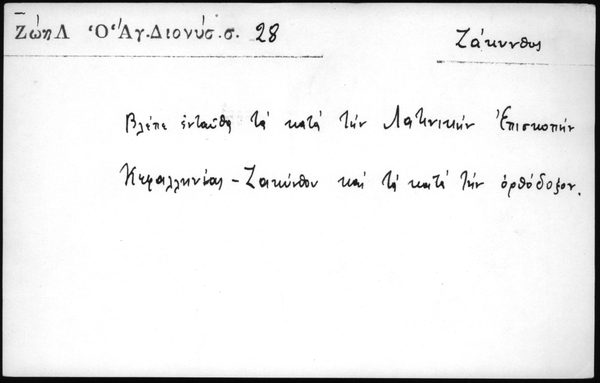 Ζώη Λ Ὁ Ἅγ. Διονύσ. σ. 28
Ζάκυνθος
Βλέπε ἐνταῦθα τὰ κατὰ τὴν Λατινικὴν Ἐπισκοπὴν
Κεφαλληνίας - Ζακύνθου καὶ τὰ κατὰ τὴν ὀρθόδοξον.